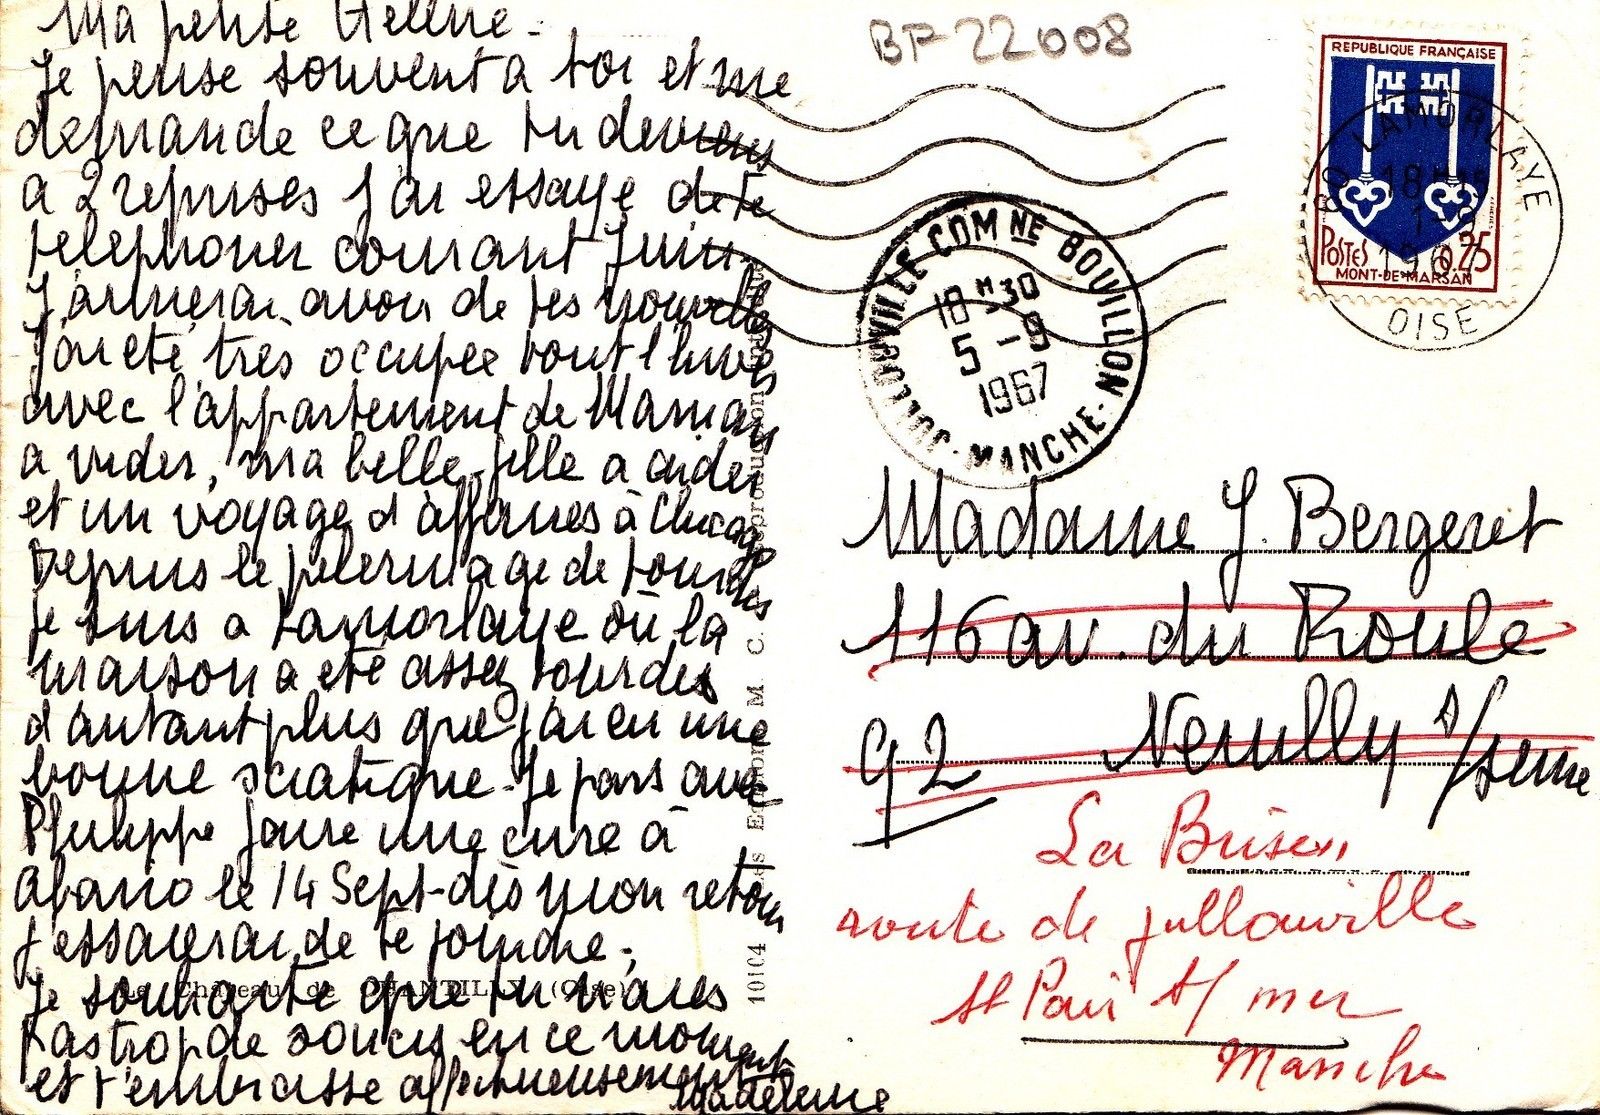 Ma petite Hélène -
Je pense souvent à toi et me
demande ce que tu deviens
a 2 reprises j'ai essayé de te
téléphoner courant Juin
J'aimerai avoir de tes nouvelles
J'ai été très occupée tout l'hiver
avec l'appartement de Maman
a vider, ma belle-fille a aider
et un voyage d'affaires à Chicago
Depuis le pelerinage de Lourdes
je suis a Lamorlaye où la
maison a été assez lourdes
d'autant plus que j'ai eu une
bonne sciatique - Je pars avec
Philippe faire une cure à
Abano le 14 Sept - dès mon retour
j'essaierai de te joindre.
Je souhaite que tu n'aies
pas trop de soucis en ce moment
et t'embrasse affectueusement
Madeleine
Le Château de CHANTILLY (Oise)
10104
M. C.
BF 22008
REPUBLIQUE FRANÇAISE
POSTES 0,25
MONT-DE-MARSAN
60 LAMORLAYE
18H15
1-9
1967
OISE
JULLOUVILLE COMNE BOUILLON
10H30
5-9
1967
MANCHE
Madame J. Bergeret
116 av. du Roule
92 Neuilly s/seine
La Brise"
route de Jullouville
St Pair s/ mer
Manche